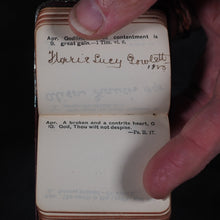 Apr. Godliness with contentment is
9. great gain.—1 Tim. vi. 6.
Lucy
Apr. A broken and a contrite heart, O
10. God, Thou wilt not despise.
—Ps. li. 17.